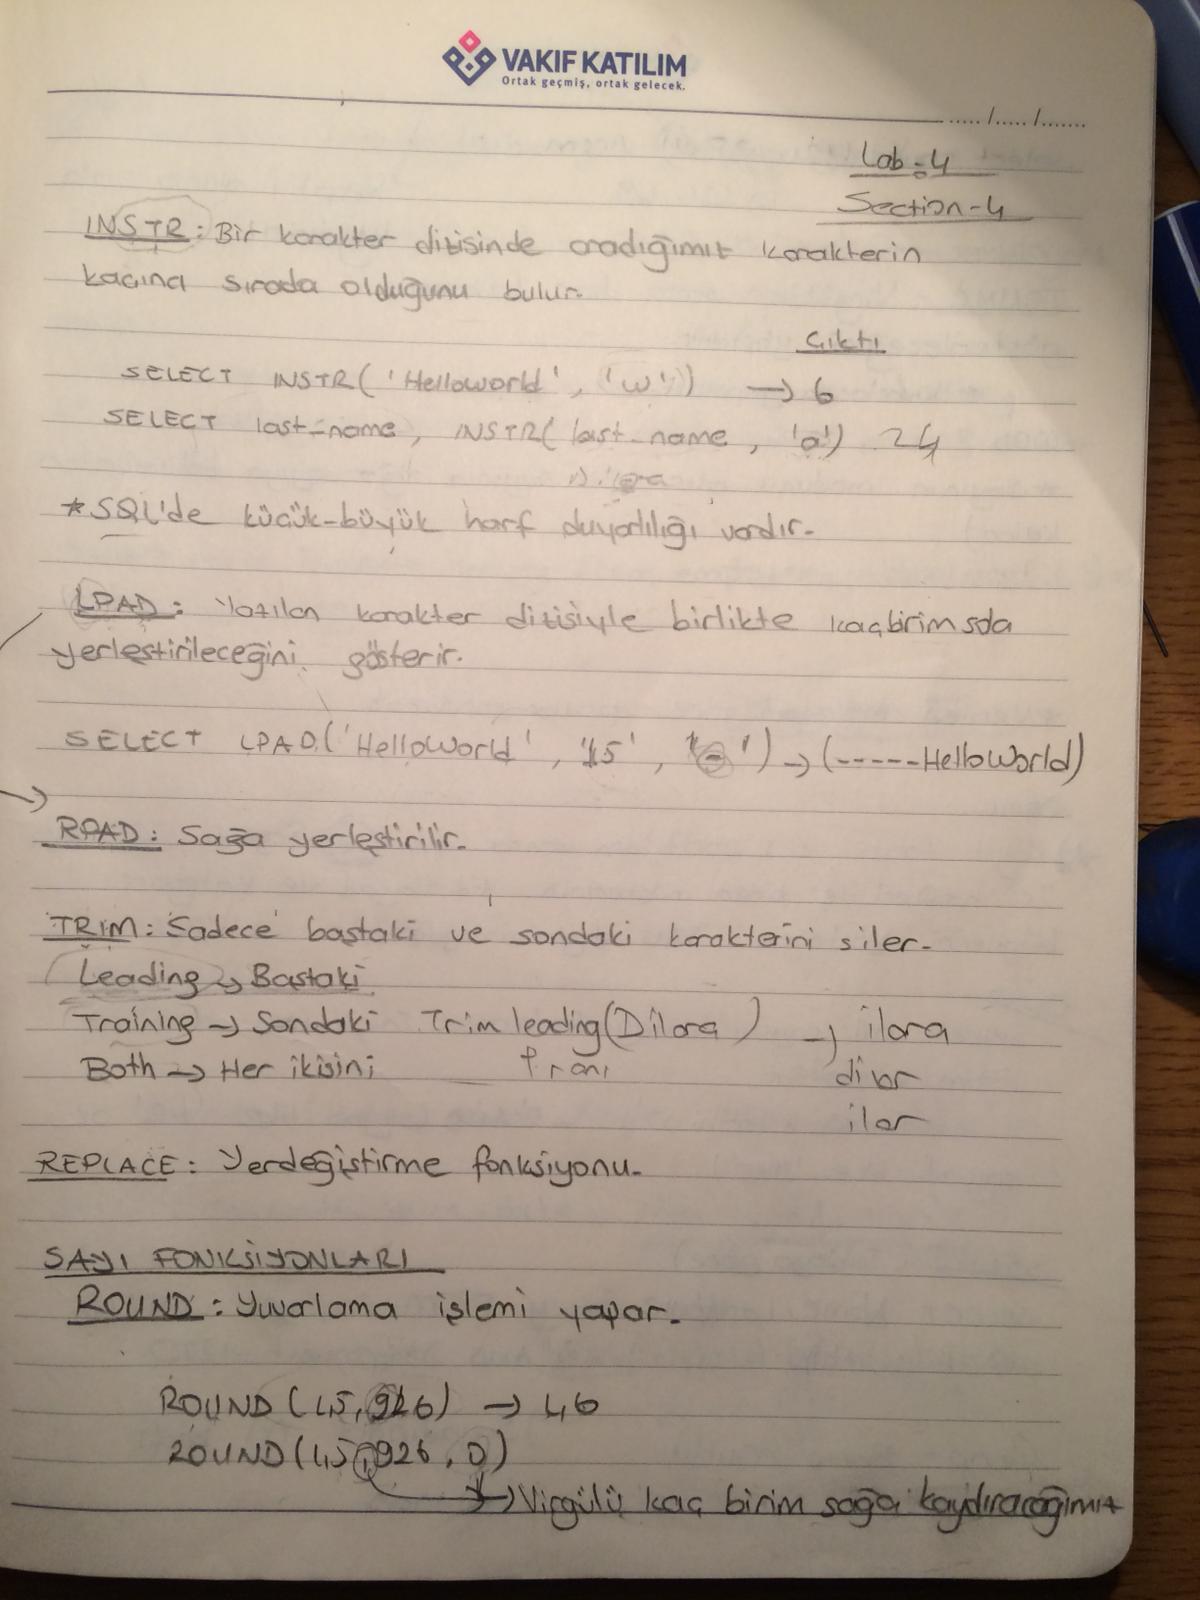 VAKIF KATILIM
Ortak geçmiş, ortak gelecek.
...../...../.......
Lab-4
Section-4
INSTR: Bir karakter dizisinde aradığımız karakterin
kaçıncı sırada olduğunu bulur.
Çıktı
SELECT INSTR('Helloworld', 'w') → 6
SELECT last_name, INSTR(last_name, 'a') 24
Dilara
*SQL'de küçük-büyük harf duyarlılığı vardır.
LPAD: Yazılan karakter dizisiyle birlikte kaç birim sola
yerleştirileceğini gösterir.
SELECT LPAD('HelloWorld', '15', '-') → (-----HelloWorld)
RPAD: Sağa yerleştirilir.
TRIM: Sadece baştaki ve sondaki karakterini siler.
Leading → Baştaki
Training → Sondaki Trim leading(Dilara) → ilara
Both → Her ikisini dilar
ilar
REPLACE: Yerdeğiştirme fonksiyonu.
SAYI FONKSİYONLARI
ROUND: Yuvarlama işlemi yapar.
ROUND (45,926) → 46
ROUND(45,926, 0)
→ Virgülü kaç birim sağa kaydıracağımız